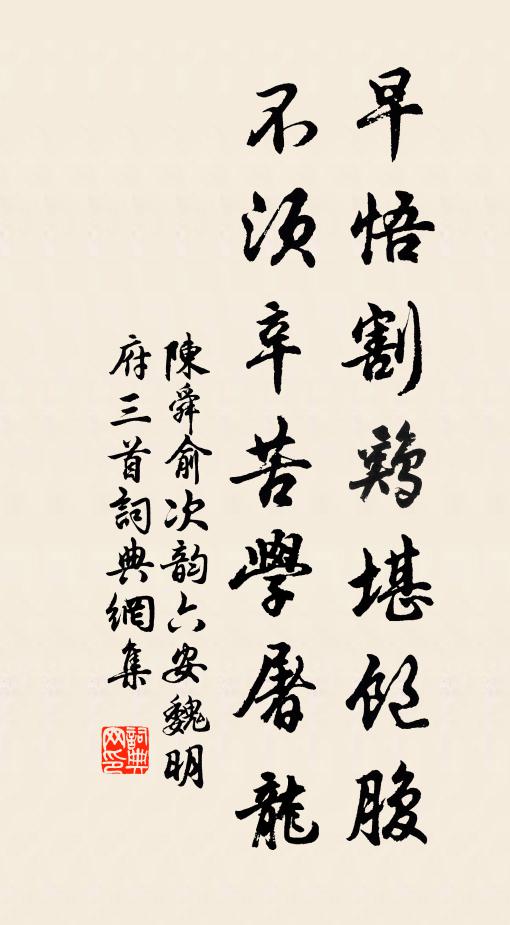 早悟割鷄堪飽腹
不須辛苦學屠龍
陳舜俞次韵六安魏明
府三首詞典網集
詞典网印